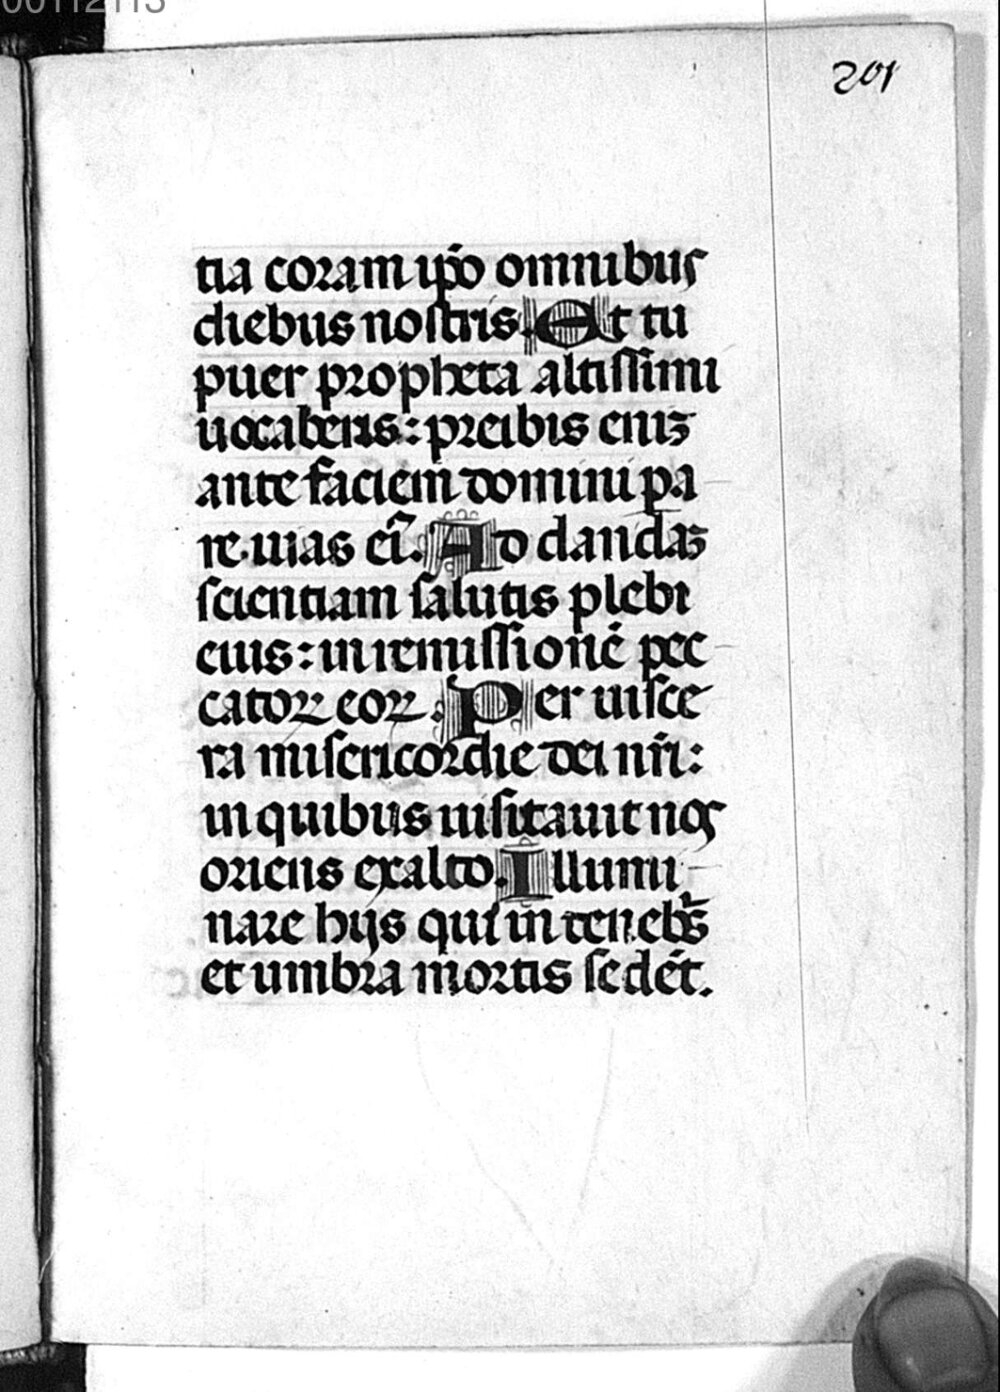 00112113
201
tia coram ip̄o omnibus
diebus nostris. Et tu
puer propheta altissimi
uocaberis: preibis eiuꝫ
ante faciem domini pa
re uias ei᷑. Ad dandaꝫ
scientiam salutis plebi
eius: in remissionē pec
catoꝝ eoꝝ. Per uisce
ra misericordie dei nr̄i:
in quibus uisitauit nos
oriens ex alto. Illumi
nare hijs qui in tenebr̄s
et umbra mortis sedēt.